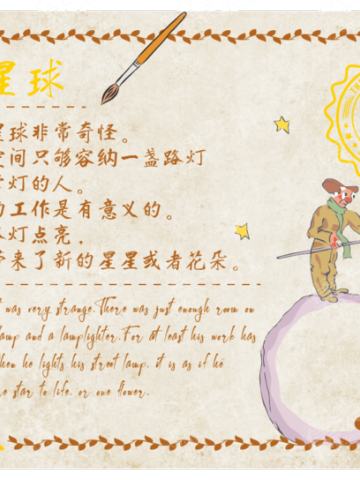 星球
星球非常奇怪。
空间只够容纳一盏路灯
灯的人。
工作是有意义的。
灯点亮，
带来了新的星星或者花朵。
was very strange. There was just enough room on
lamp and a lamplighter. For at least his work has
When he lights his street lamp, it is as if he
star to life, or one flower.